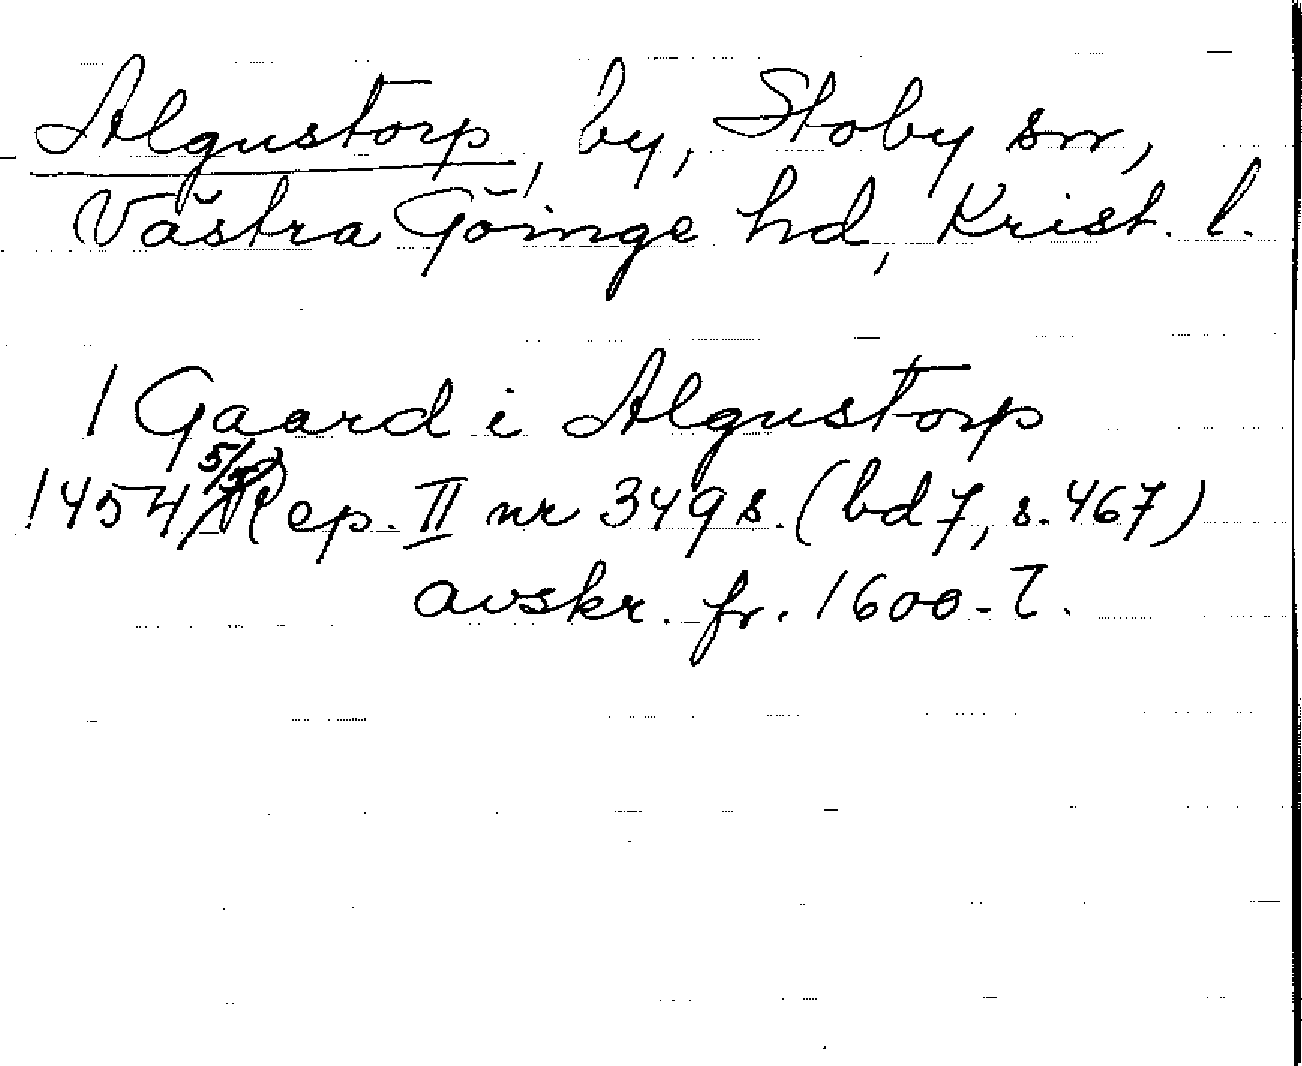 Algustorp, by, Stoby sn,
Västra Göinge hd, Krist. l.
1 Gaard i Algustorp
1454 5/5 Rep. II nr 349 s. (bd 7, s. 467)
avskr. fr. 1600-t.